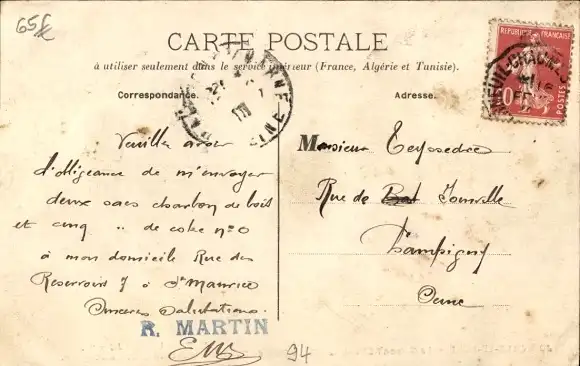 65f
CARTE POSTALE
à utiliser seulement dans le service intérieur (France, Algérie et Tunisie).
Correspondance.
Adresse.
REPUBLIQUE FRANÇAISE
POSTES
10
Veuillez avoir
l'obligeance de m'envoyer
deux sacs charbon de bois
et cinq " de coke n° 0
à mon domicile Rue des
Reservoirs 7 à St Maurice
Sinceres Salutations.
R. MARTIN
94
Monsieur Teyssedre
Rue de Joinville
Champigny
Seine